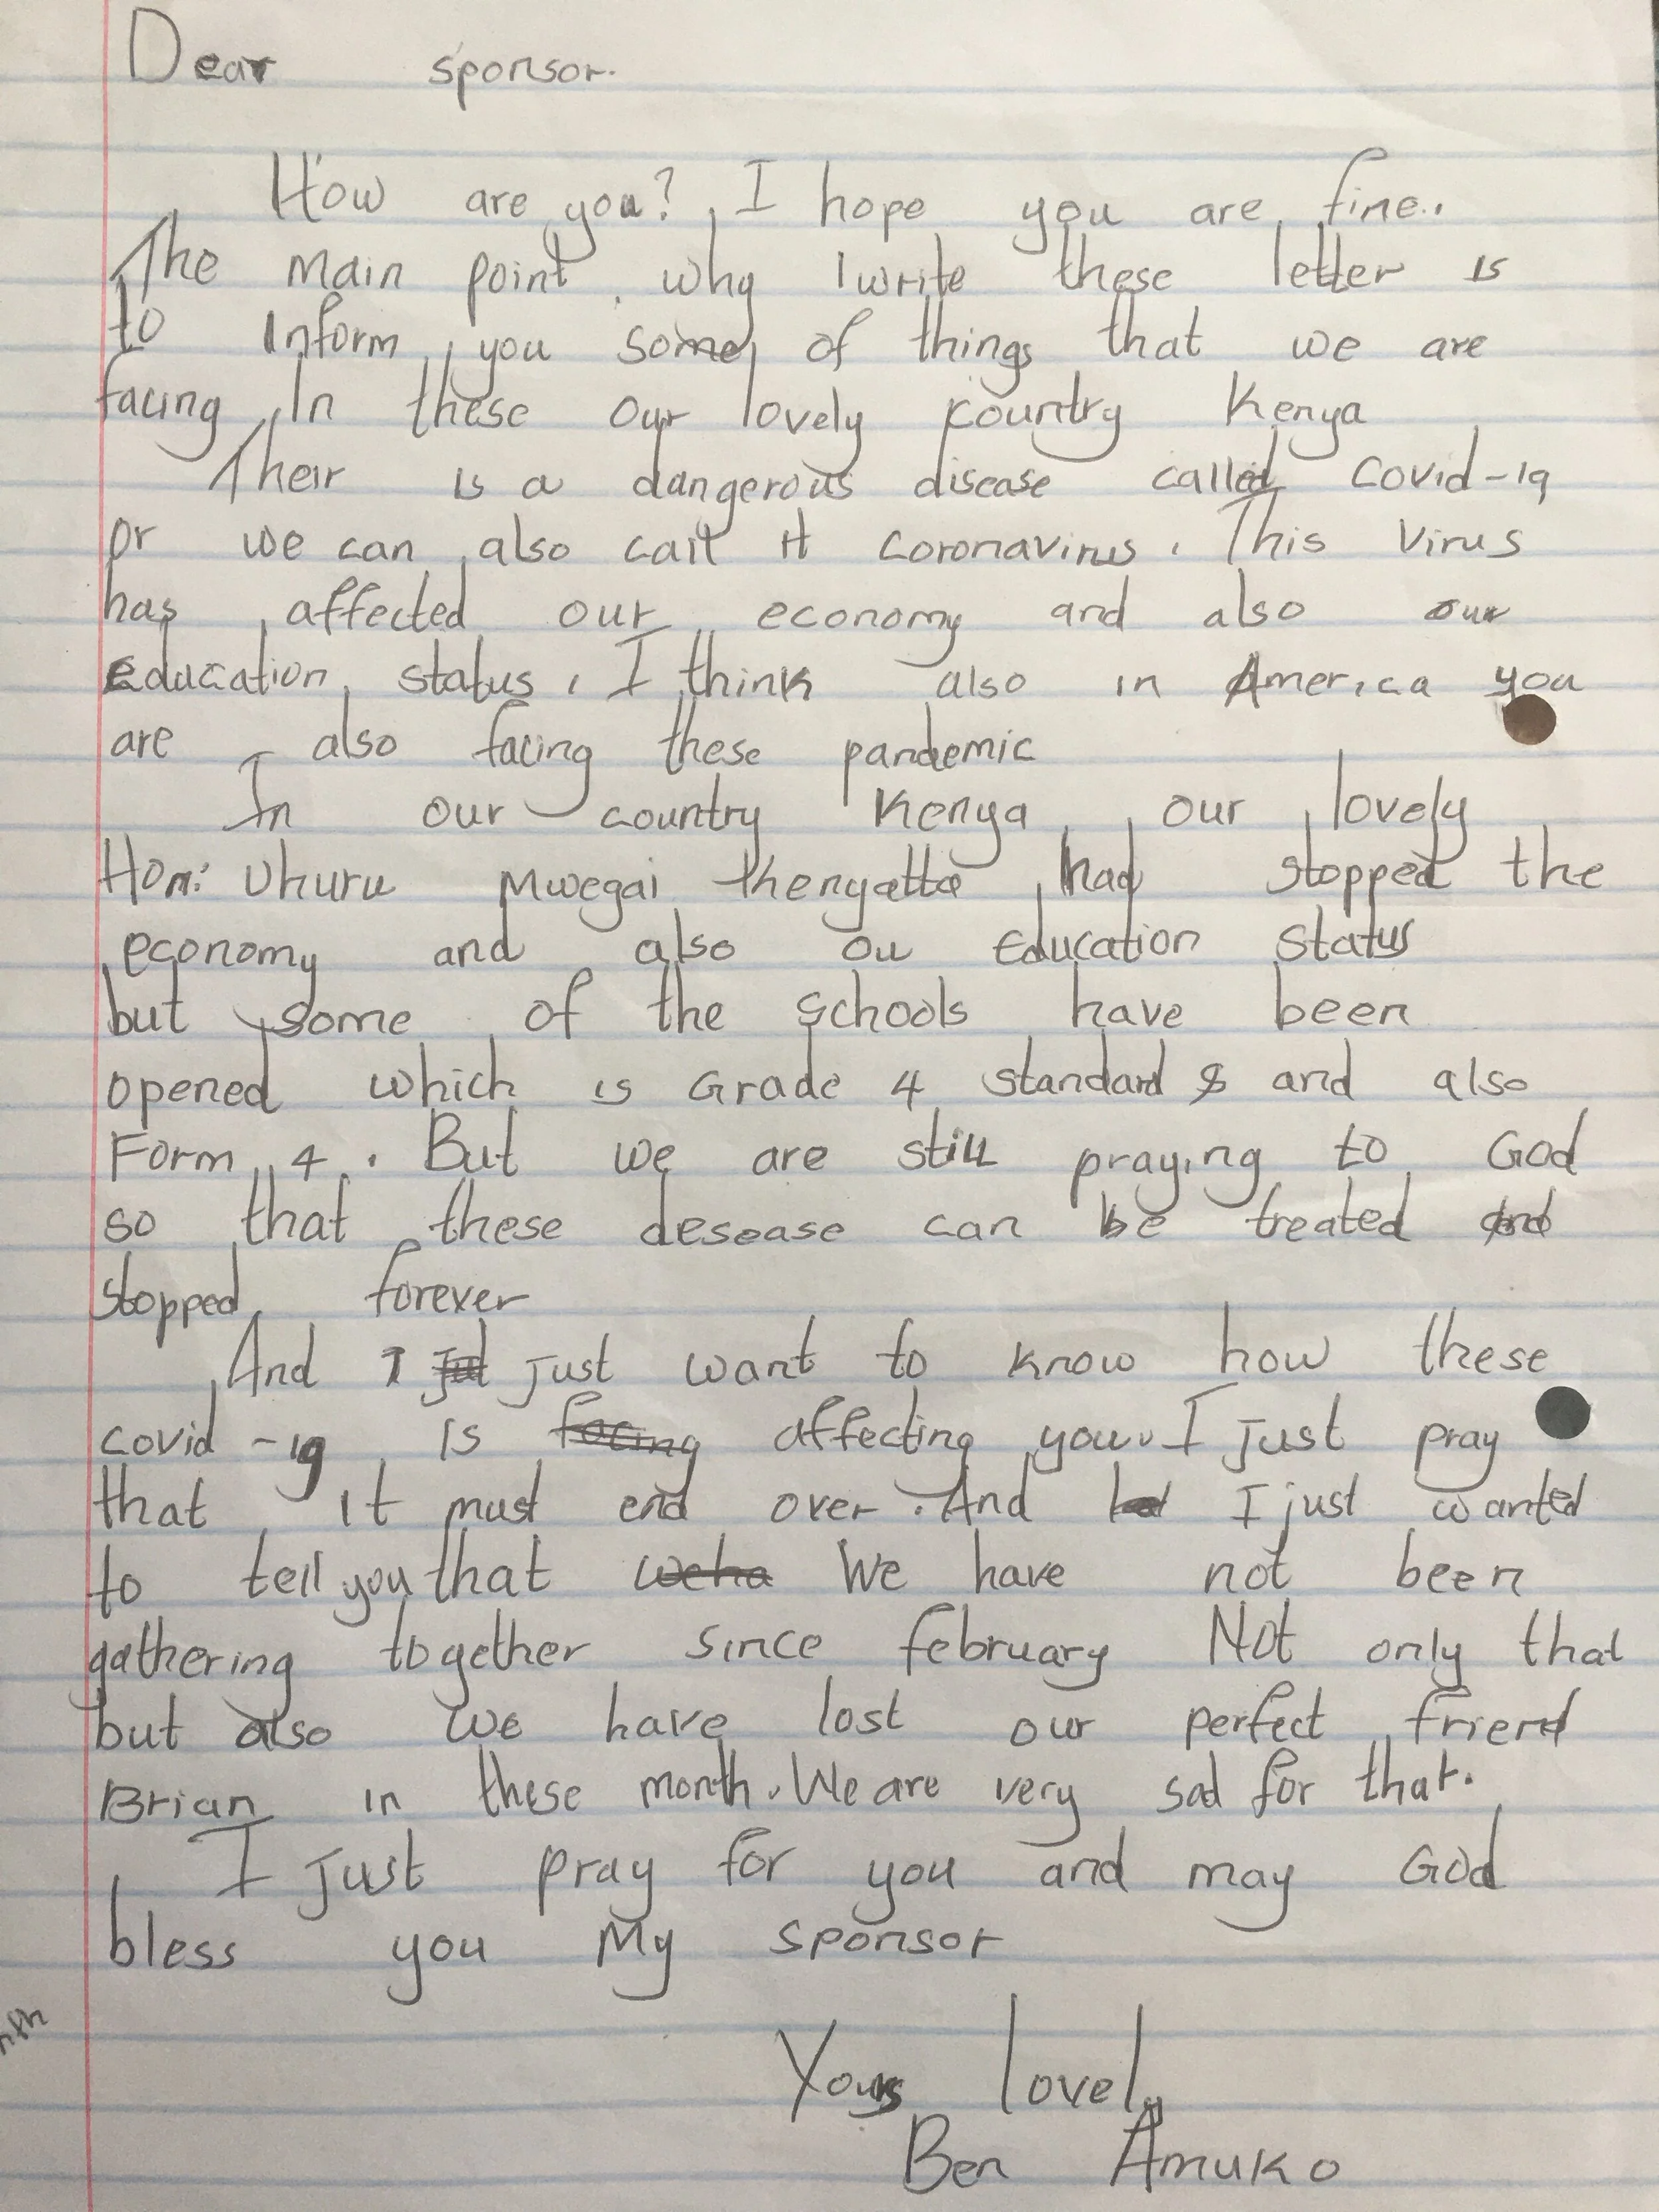 Dear sponsor.
How are you? I hope you are fine.
The main point why I write these letter is
to Inform you some of things that we are
facing In these our lovely country Kenya
Their is a dangerous disease called Covid-19
or we can also call it coronavirus. This Virus
has affected our economy and also our
education status, I think also in America you
are also facing these pandemic
In our country Kenya our lovely
Hon: Uhuru Mwegai thenyatta had stopped the
economy and also ou Education status
but some of the schools have been
opened which is Grade 4 standard 8 and also
Form 4. But we are still praying to God
so that these desease can be treated and
stopped forever
And I just want to know how these
covid-19 is facing affecting you. I just pray
that it must end over. And I just wanted
to tell you that weha We have not been
gathering together since february Not only that
but also we have lost our perfect friend
Brian in these month. We are very sad for that.
I just pray for you and may God
bless you My sponsor
Yours lovely
Ben Amuko